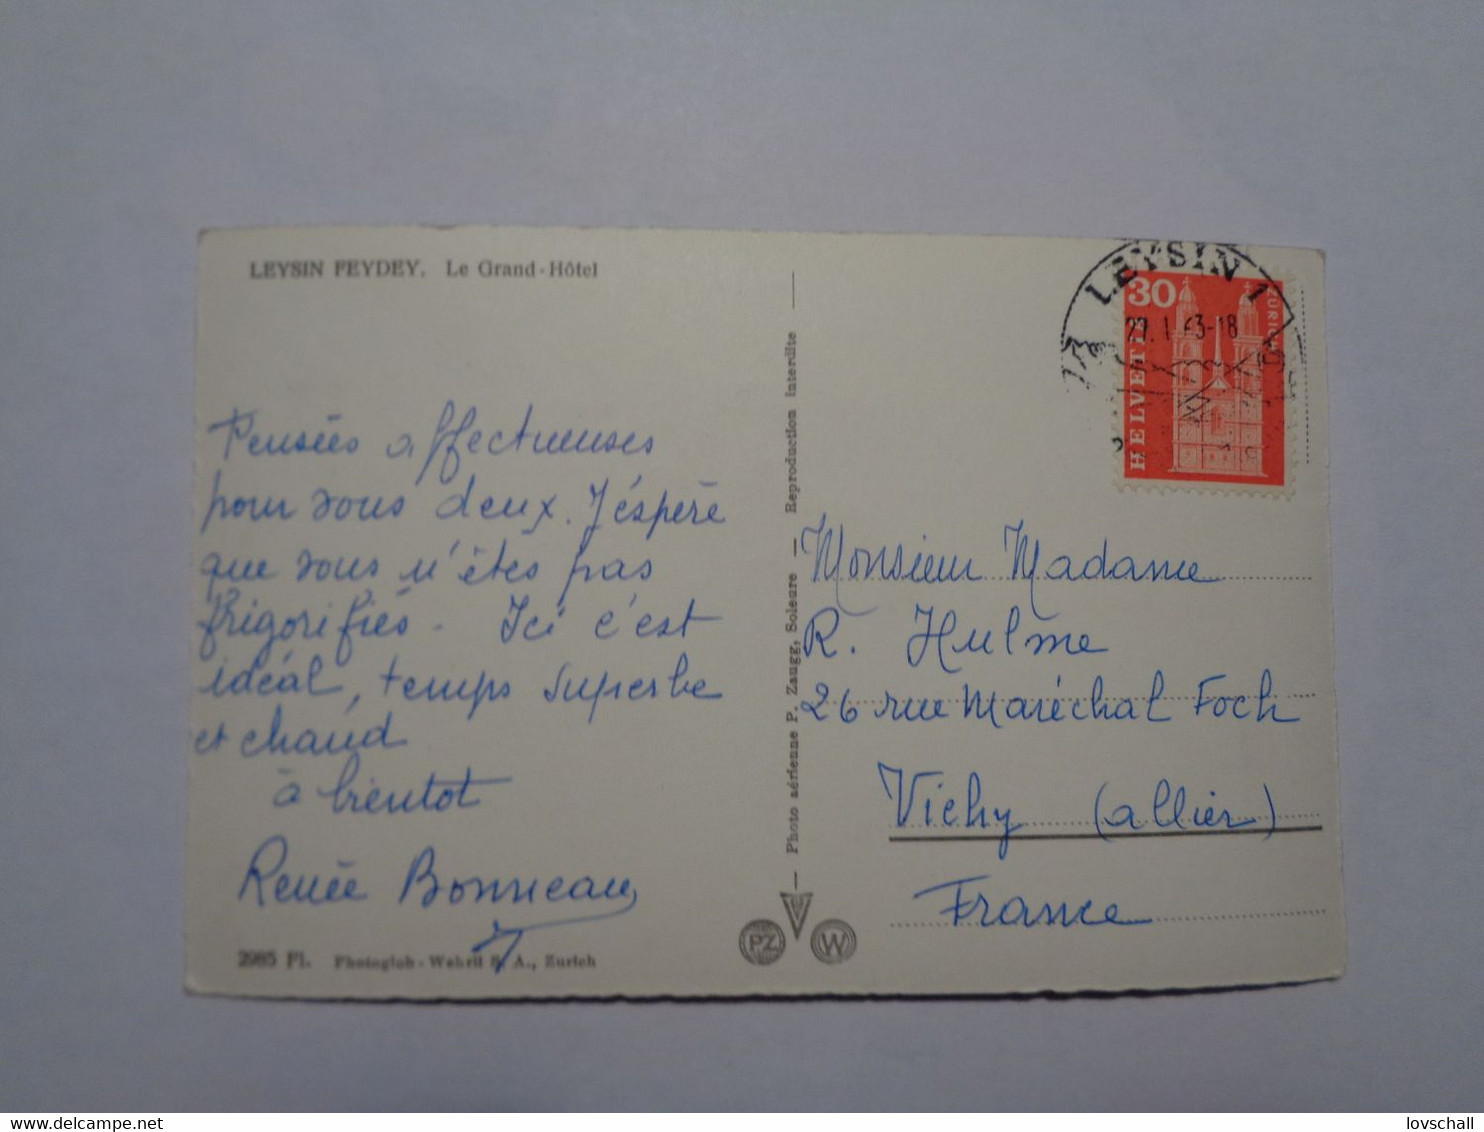 LEYSIN FEYDEY. Le Grand-Hôtel
Pensées affectueuses
pour vous deux. J'éspère
que vous n'êtes pas
frigorifiés - Ici c'est
idéal, temps superbe
et chaud
à bientot
Renée Bonneau
2985 Pl. Photoglob-Wehrli S.A., Zurich
Photo aérienne P. Zaugg, Soleure — Reproduction interdite
PZ
W
LEYSIN 1
27. I. 63-18
30
HELVETIA
ZÜRICH
Monsieur Madame
R. Hulme
26 rue Maréchal Foch
Vichy (allier)
France
lovschall